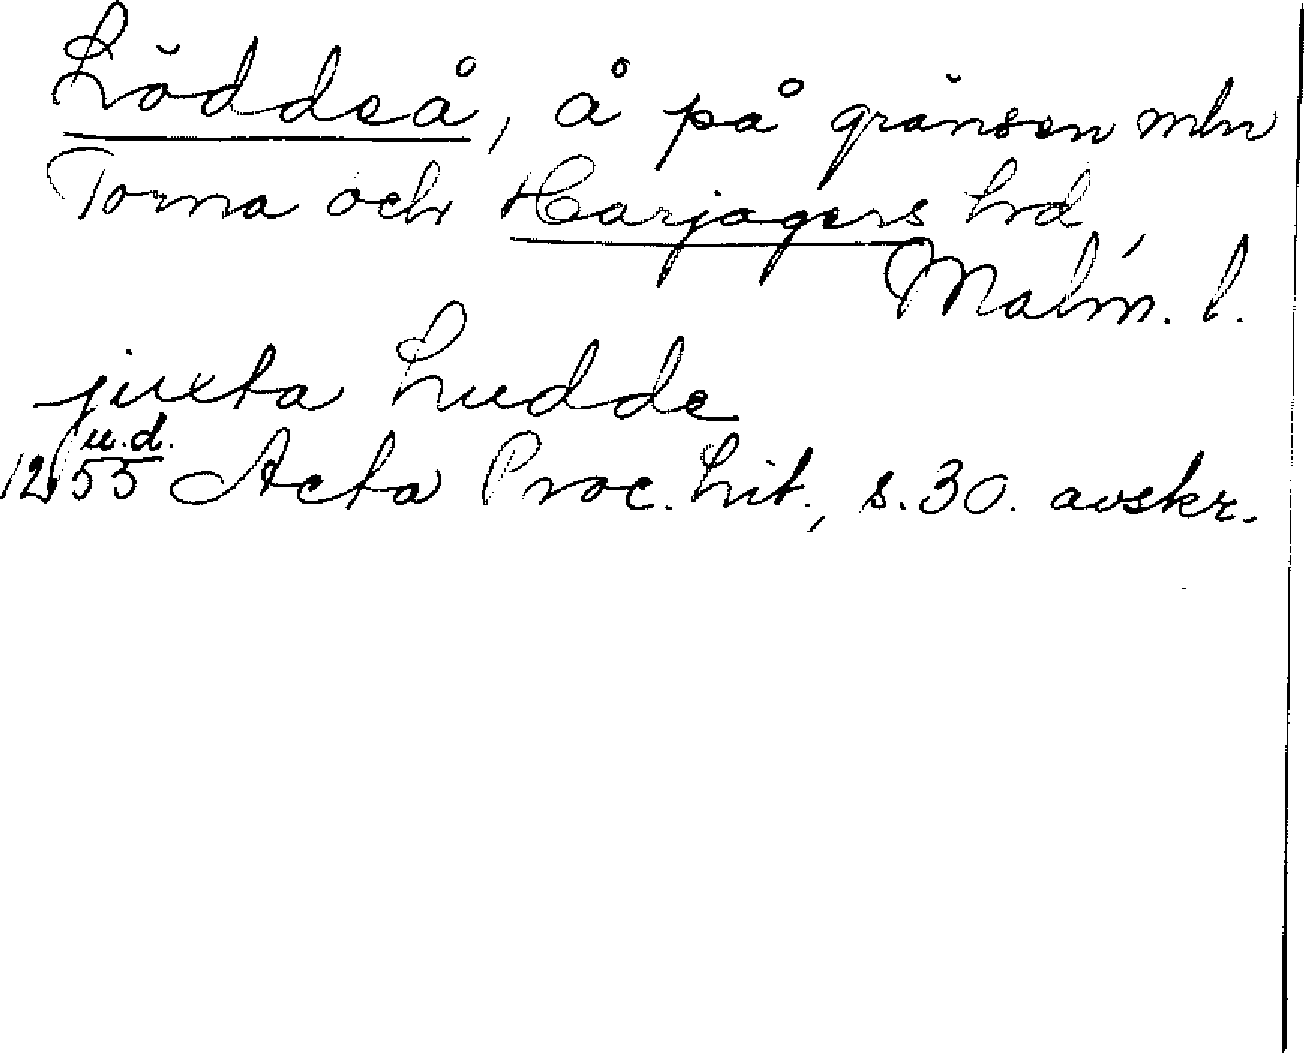 Löddeå, å på gränsen mln
Torna och Harjagers hd,
Malm. l.
juxta Ludde
12 u.d./55 Acta Proc. Lit., s. 30. avskr.